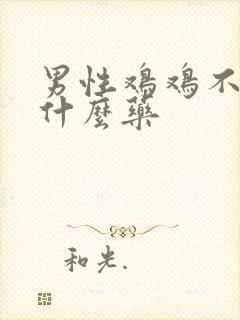 男性鸡鸡不
什麼藥
和光.